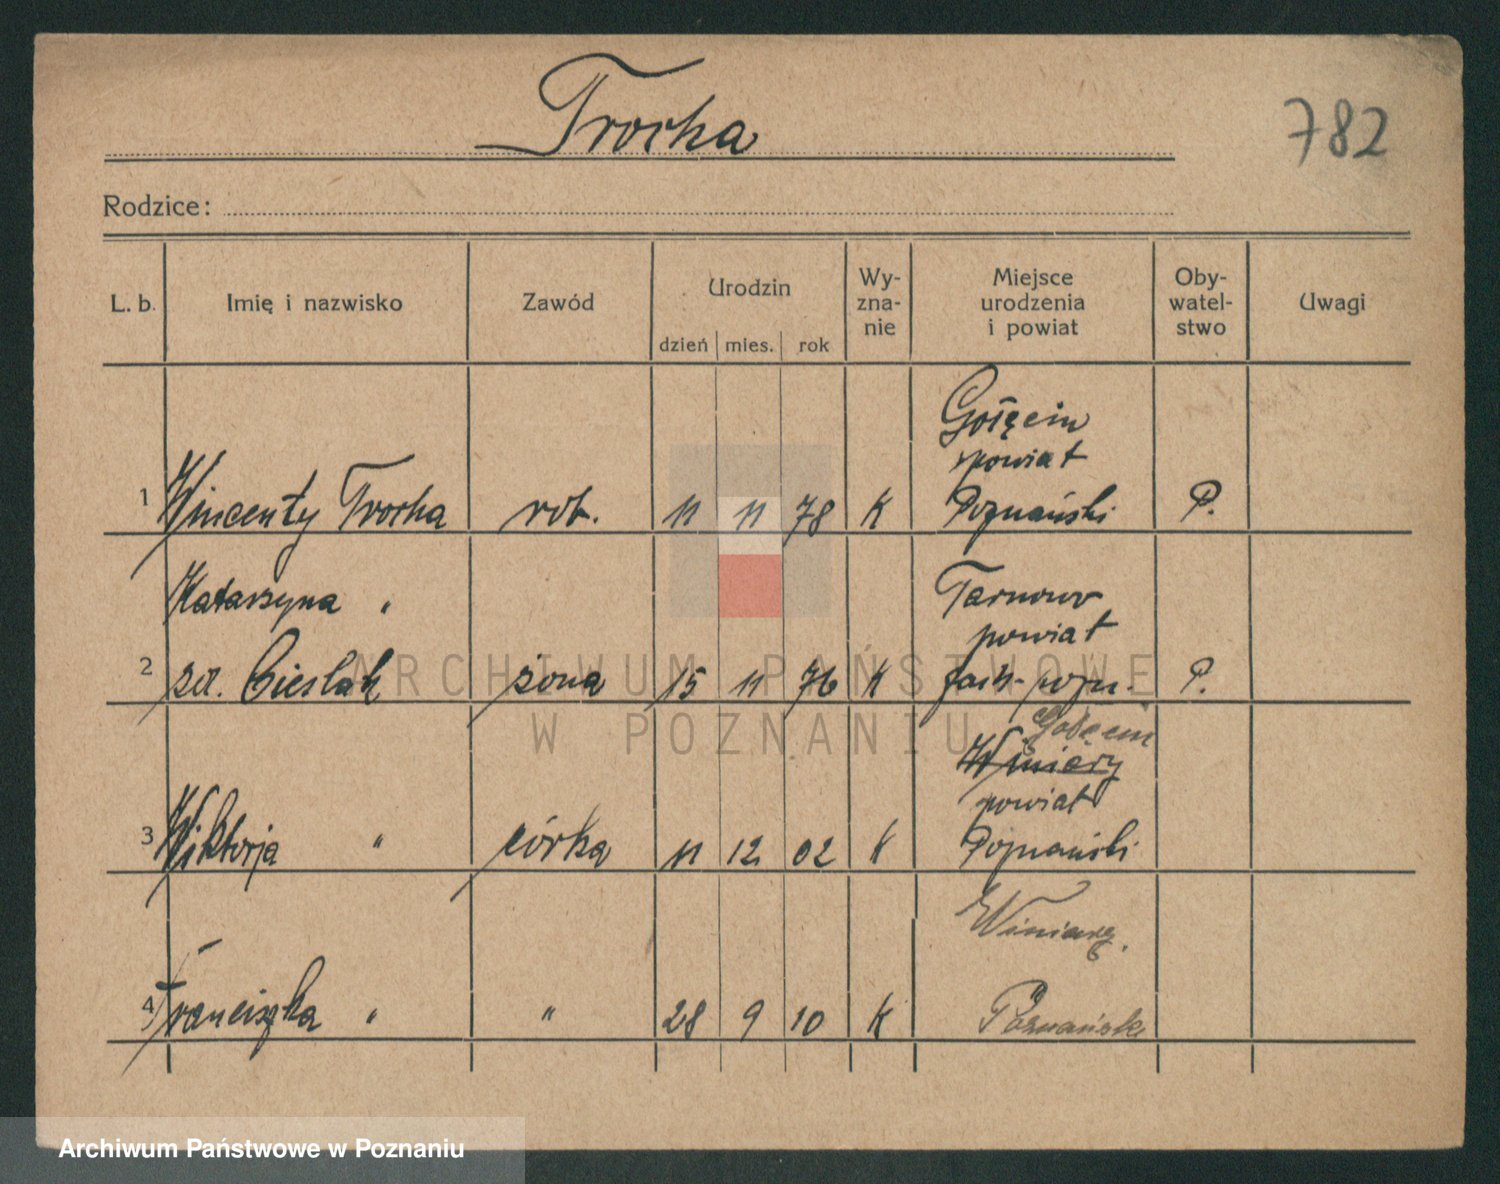 Trocha
782
Rodzice:
L. b. Imię i nazwisko Zawód Urodzin Wy-zna-nie Miejsce urodzenia i powiat Oby-watel-stwo Uwagi
dzień mies. rok
Gołęcin
powiat
1 Wincenty Trocha rob. 11 11 78 K Poznański P.
Katarzyna " Tarnowo
powiat
2 zd. Cieslak żona 15 11 76 K P.
Gołęcin
Winiary
powiat
3 Wiktorja " córka 11 12 02 K Poznański
Winiary.
4 Franciszka " " 28 9 10 K Poznański
ARCHIWUM PAŃSTWOWE
W POZNANIU
Archiwum Państwowe w Poznaniu